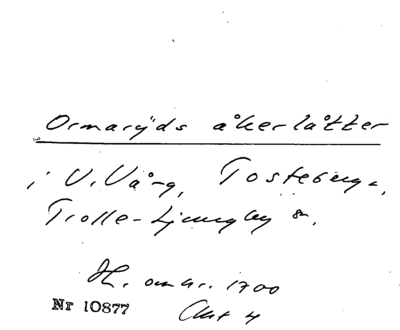 Ormaryds åkerlåtter
i V. Vång, Tosteberga,
Trolle-Ljungby sn.
omkr. 1700
Nr 10877 Akt 4